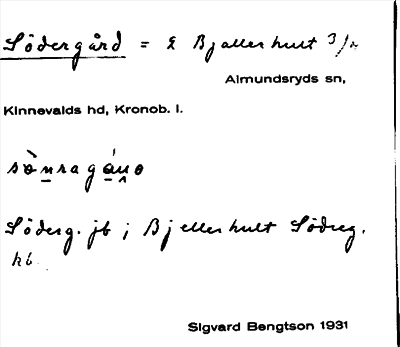 Södergård = E Bjällerhult 3/4
Almundsryds sn,
Kinnevalds hd, Kronob. l.
sònragáno
Söderg. jb ; Bjellerhult Södreg.
kb.
Sigvard Bengtson 1931